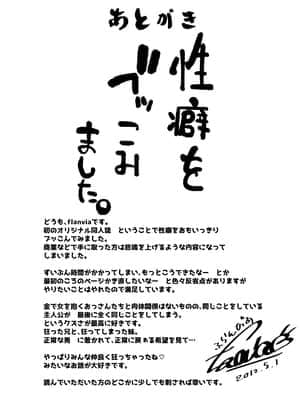 あとがき
性癖を
ブッこみ
ました。
どうも、flanviaです。
初のオリジナル同人誌　ということで性癖をおもいっきり
ブッこんでみました。
商業などで手に取った方は悲鳴を上げるような内容になって
しまいました。
ずいぶん時間がかかってしまい、もっとこうできたなー　とか
最初のころのページかき直したいなー　と色々反省点がありますが
やりたいことはやれたので満足しています。
金で女を抱くおっさんたちと肉体関係はないものの、同じことをしている
主人公が　最後に全く同じことをしてしまう。
というクズさが最高に好きです。
狂った兄と、狂って しまった妹。
正常な男　に惹かれて、正常に戻れる希望を見て…
やっぱりみんな仲良く狂っちゃったね♡
みたいなお話が大好きです。
読んでいただいた方のどこかに少しでも刺されば幸いです。
ふらんぴあ
5.1